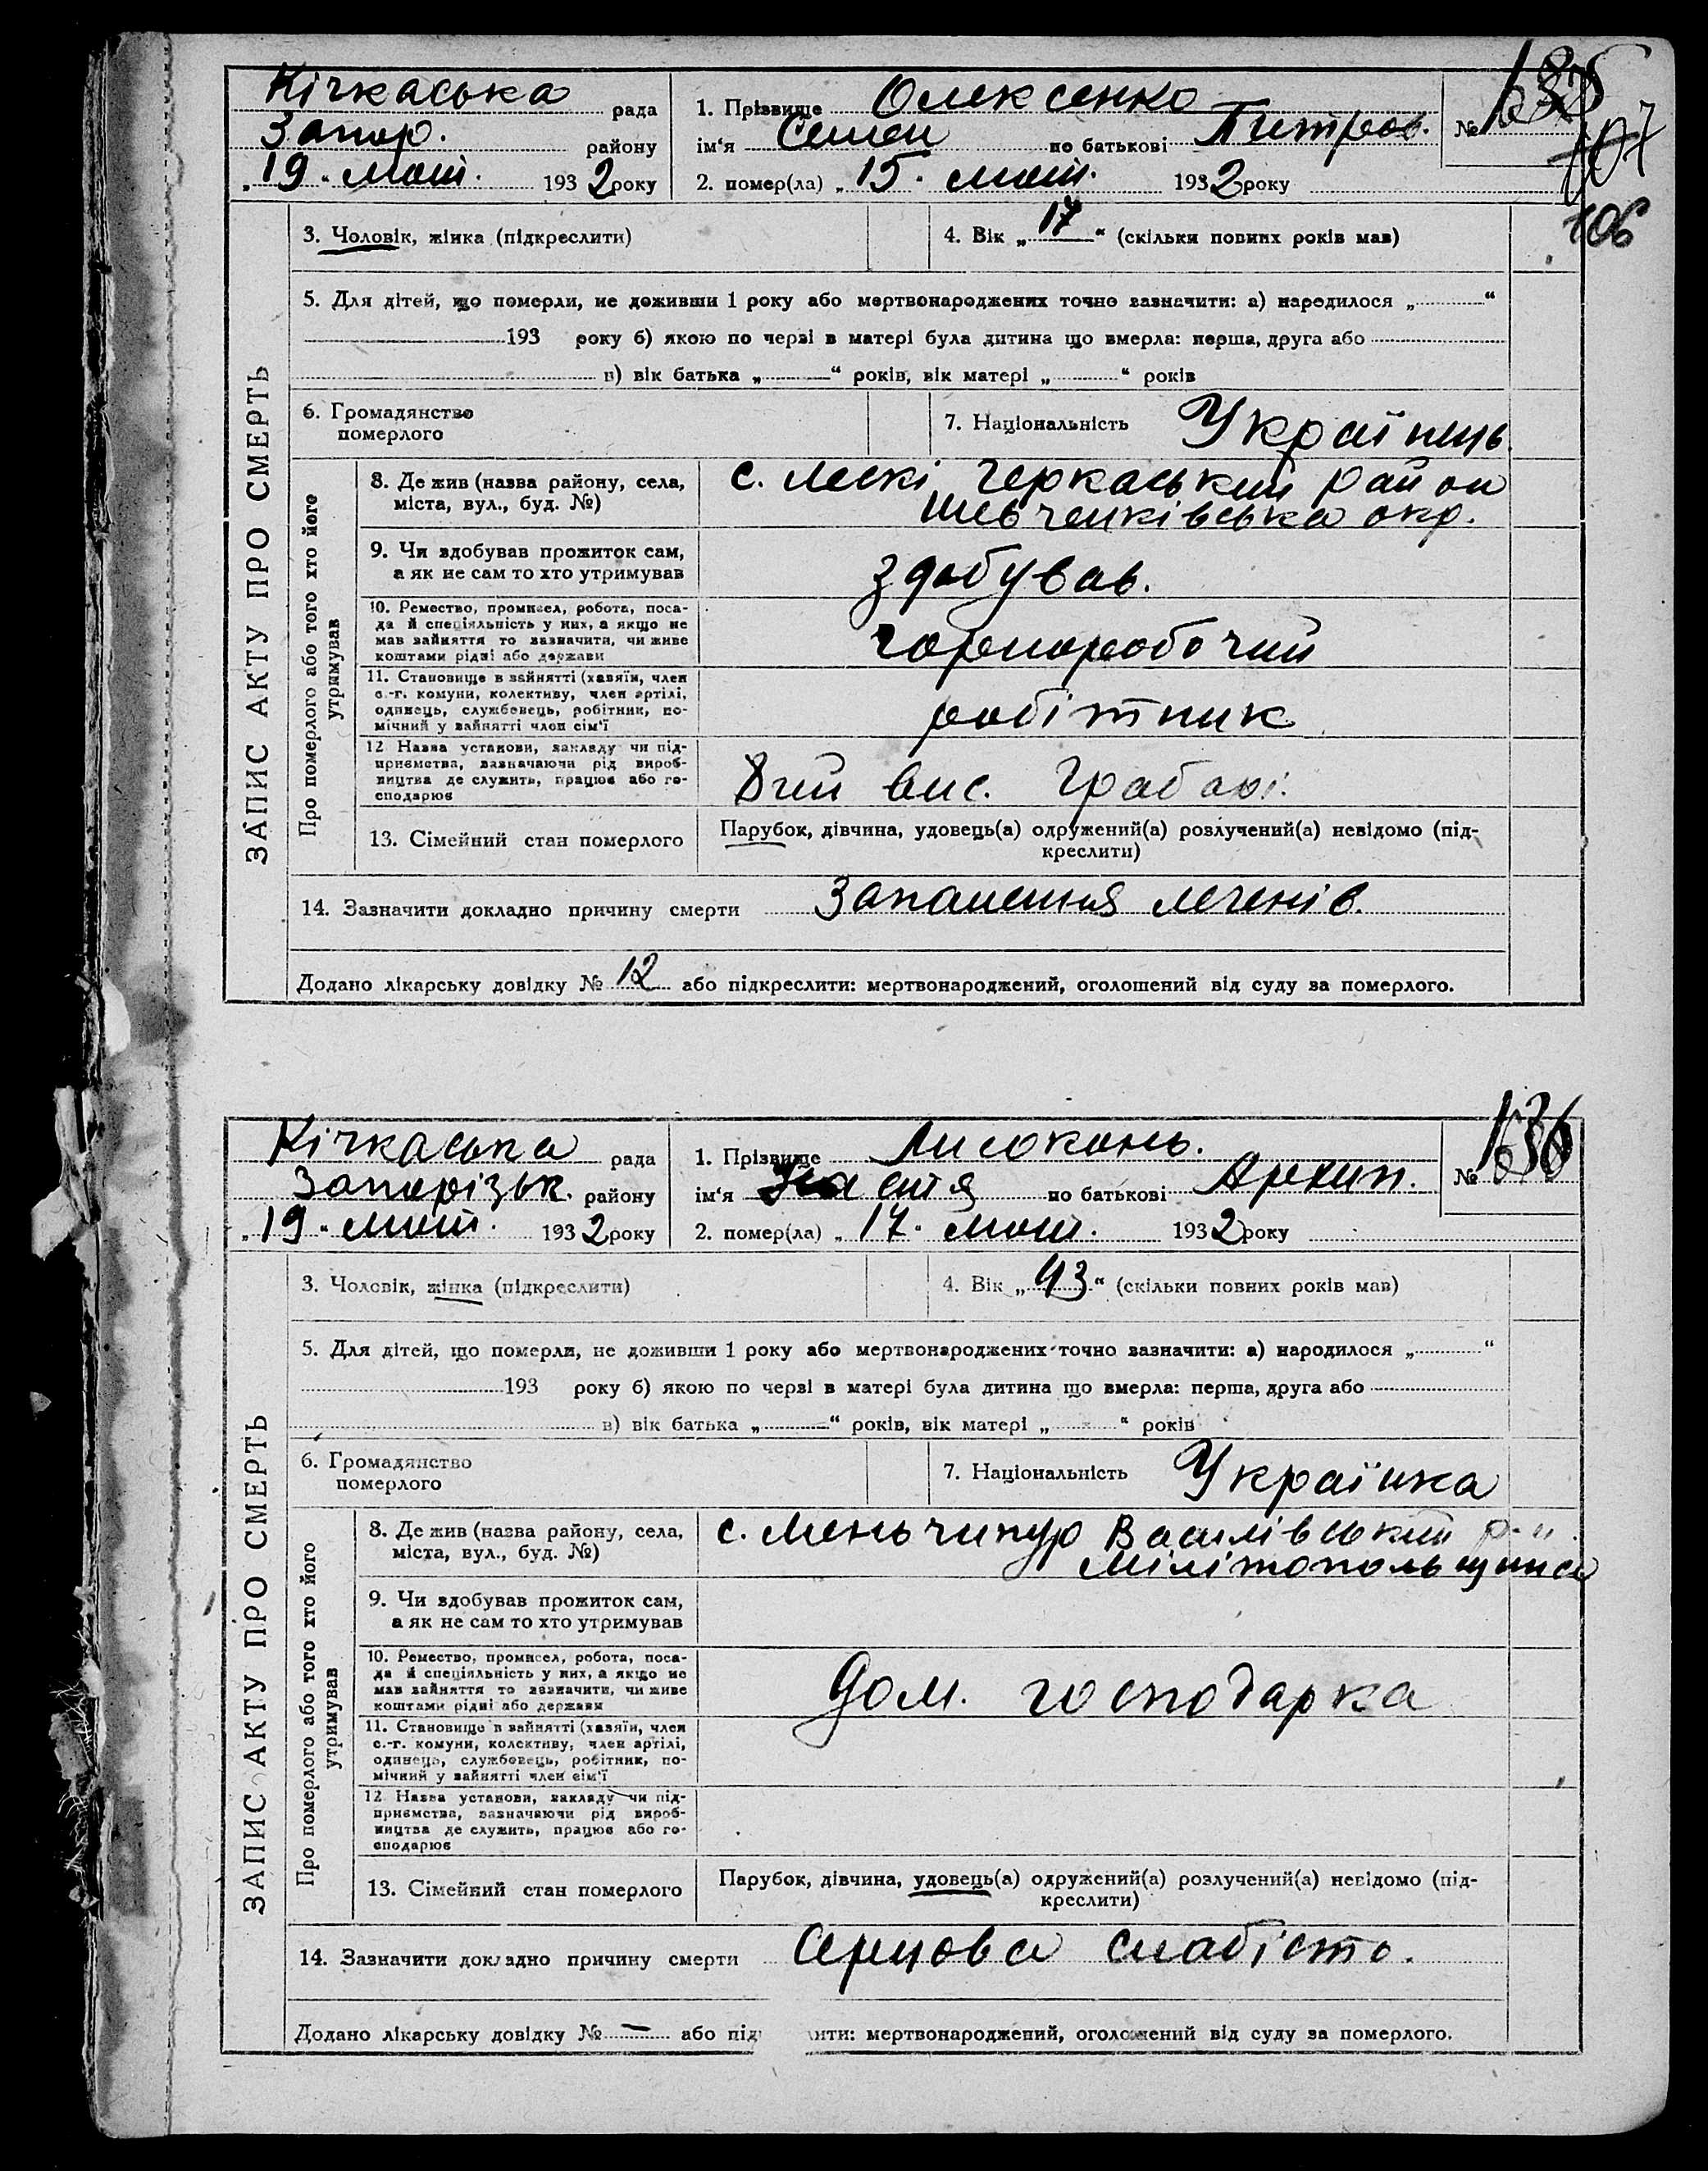 Кічкаська рада
Запор. району
„19“ лют. 1932 року
1. Прізвище Олексенко
ім‘я Семен по батькові Питров.
2. помер(ла) „15“ лют. 1932 року
№ 135
107
106
ЗАПИС АКТУ ПРО СМЕРТЬ
3. Чоловік, жінка (підкреслити)
4. Вік „17“ (скільки повних років мав)
5. Для дітей, що померли, не доживши 1 року або мертвонароджених точно зазначити: а) народилося „ “
193 року б) якою по черзі в матері була дитина що вмерла: перша, друга або
в) вік батька „ “ років, вік матері „ “ років
6. Громадянство
померлого
7. Національність Українець
Про померлого або того хто його
утримував
8. Де жив (назва району, села,
міста, вул., буд. №)
с. Лескі Черкаський район
Шевченківська окр.
9. Чи здобував прожиток сам,
а як не сам то хто утримував
здобував.
10. Ремество, промисел, робота, поса-
да й спеціяльність у них, а якщо не
мав зайняття то зазначити, чи живе
коштами рідні або держави
чорноробочий
11. Становище в зайнятті (хазяїн, член
с.-г. комуни, колективу, член артілі,
одинець, службовець, робітник, по-
мічний у зайнятті член сім‘ї
робітник
12 Назва установи, закладу чи під-
приємства, зазначаючи рід вироб-
ництва де служить, працює або го-
сподарює
8ий вис. Грабарі.
13. Сімейний стан померлого
Парубок, дівчина, удовець(а) одружений(а) розлучений(а) невідомо (під-
креслити)
14. Зазначити докладно причину смерти Запалення легенів.
Додано лікарську довідку № 12 або підкреслити: мертвонароджений, оголошений від суду за померлого.
Кічкаська рада
Запорізьк. району
„19“ лют. 1932 року
1. Прізвище Лисоконь.
ім‘я Настя по батькові Архип.
2. помер(ла) „17“ лют. 1932 року
№ 136
ЗАПИС АКТУ ПРО СМЕРТЬ
3. Чоловік, жінка (підкреслити)
4. Вік „43“ (скільки повних років мав)
5. Для дітей, що померли, не доживши 1 року або мертвонароджених точно зазначити: а) народилося „ “
193 року б) якою по черзі в матері була дитина що вмерла: перша, друга або
в) вік батька „ “ років, вік матері „ “ років
6. Громадянство
померлого
7. Національність Українка
Про померлого або того хто його
утримував
8. Де жив (назва району, села,
міста, вул., буд. №)
с. Меньчикур Василівський р-н.
Мілітопольщина
9. Чи здобував прожиток сам,
а як не сам то хто утримував
10. Ремество, промисел, робота, поса-
да й спеціяльність у них, а якщо не
мав зайняття то зазначити, чи живе
коштами рідні або держави
дом. господарка
11. Становище в зайнятті (хазяїн, член
с.-г. комуни, колективу, член артілі,
одинець, службовець, робітник, по-
мічний у зайнятті член сім‘ї
12 Назва установи, закладу чи під-
приємства, зазначаючи рід вироб-
ництва де служить, працює або го-
сподарює
13. Сімейний стан померлого
Парубок, дівчина, удовець(а) одружений(а) розлучений(а) невідомо (під-
креслити)
14. Зазначити докладно причину смерти Серцова слабість.
Додано лікарську довідку № — або під ити: мертвонароджений, оголошений від суду за померлого.